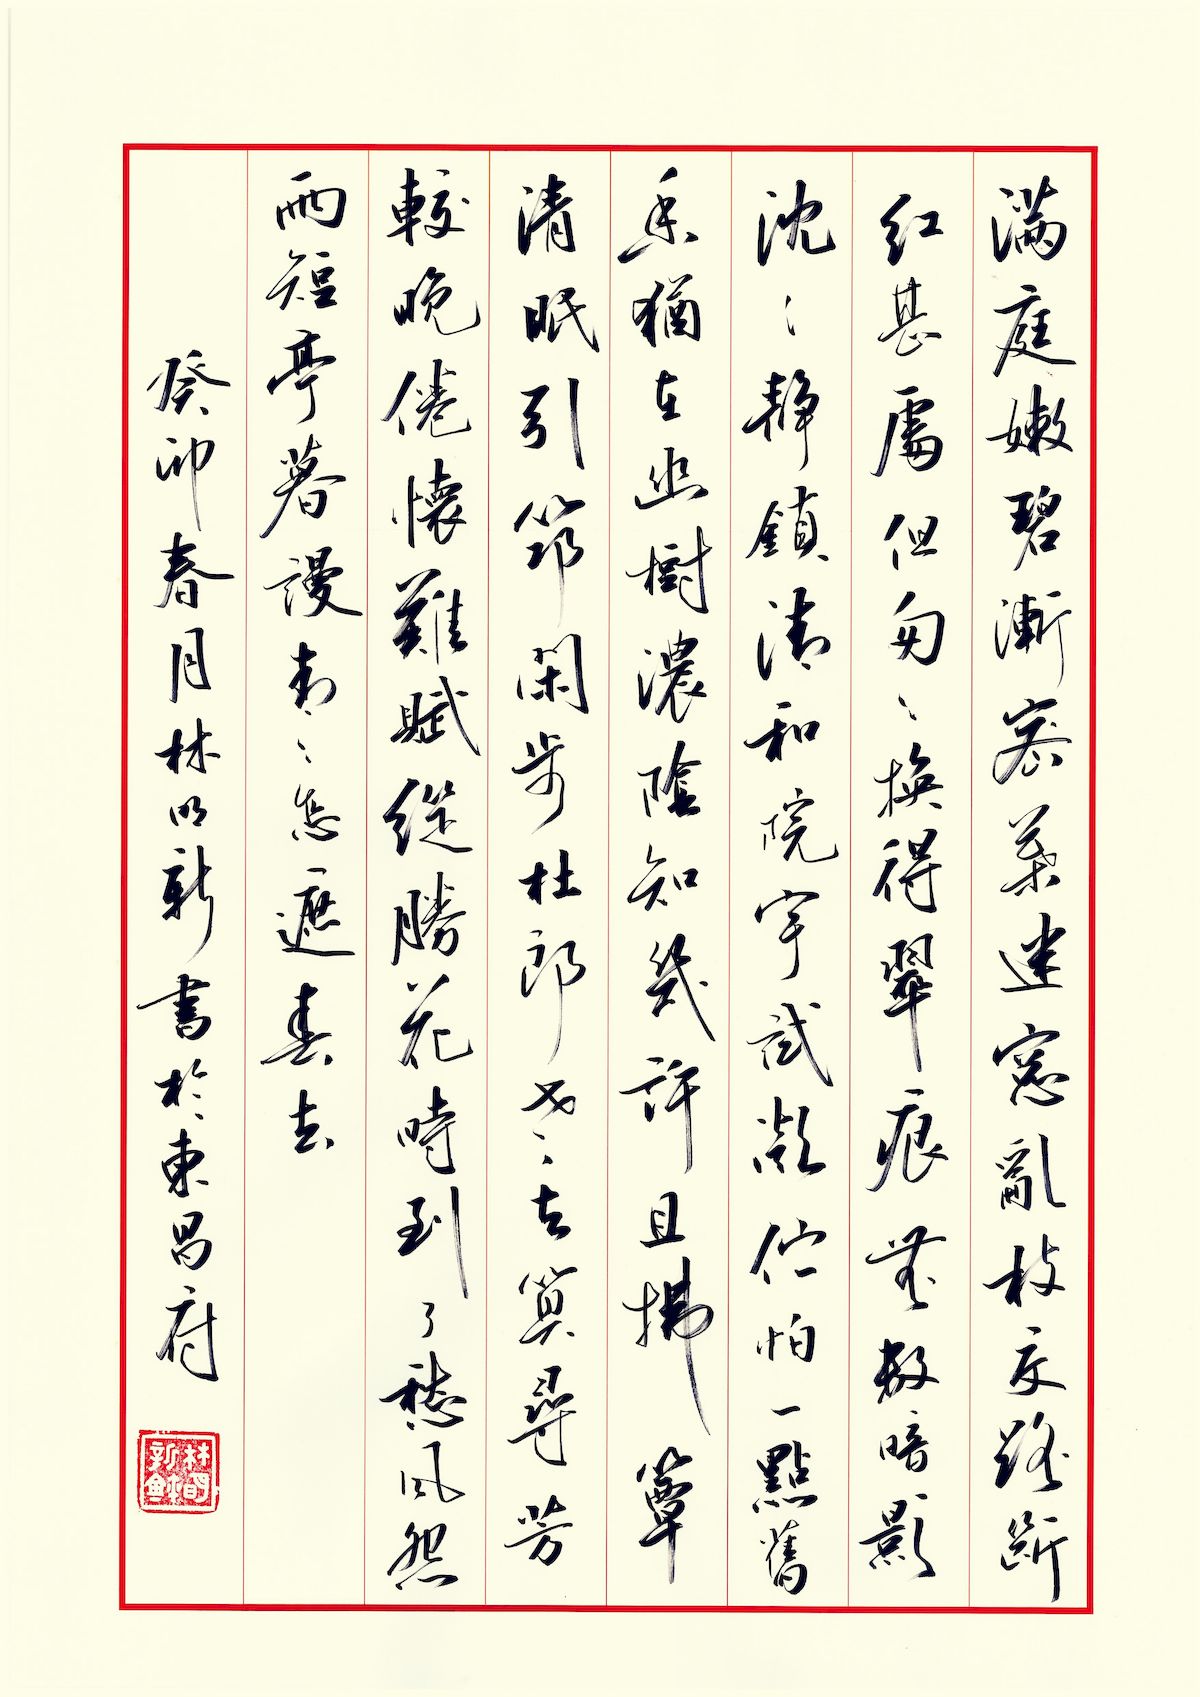 滿庭嫩碧漸密葉迷窗亂枝交路斷
紅甚處但匆〻換得翠痕無數暗影
沈〻靜鎖清和院宇試凝佇怕一點舊
香猶在幽樹濃陰知幾許且拂簟
清眠引筇閑步杜郎老去算尋芳
較晚倦懷難賦縱勝花時到了愁風怨
雨短亭暮漫青〻怎遮春去
癸卯春月林明新書於東昌府